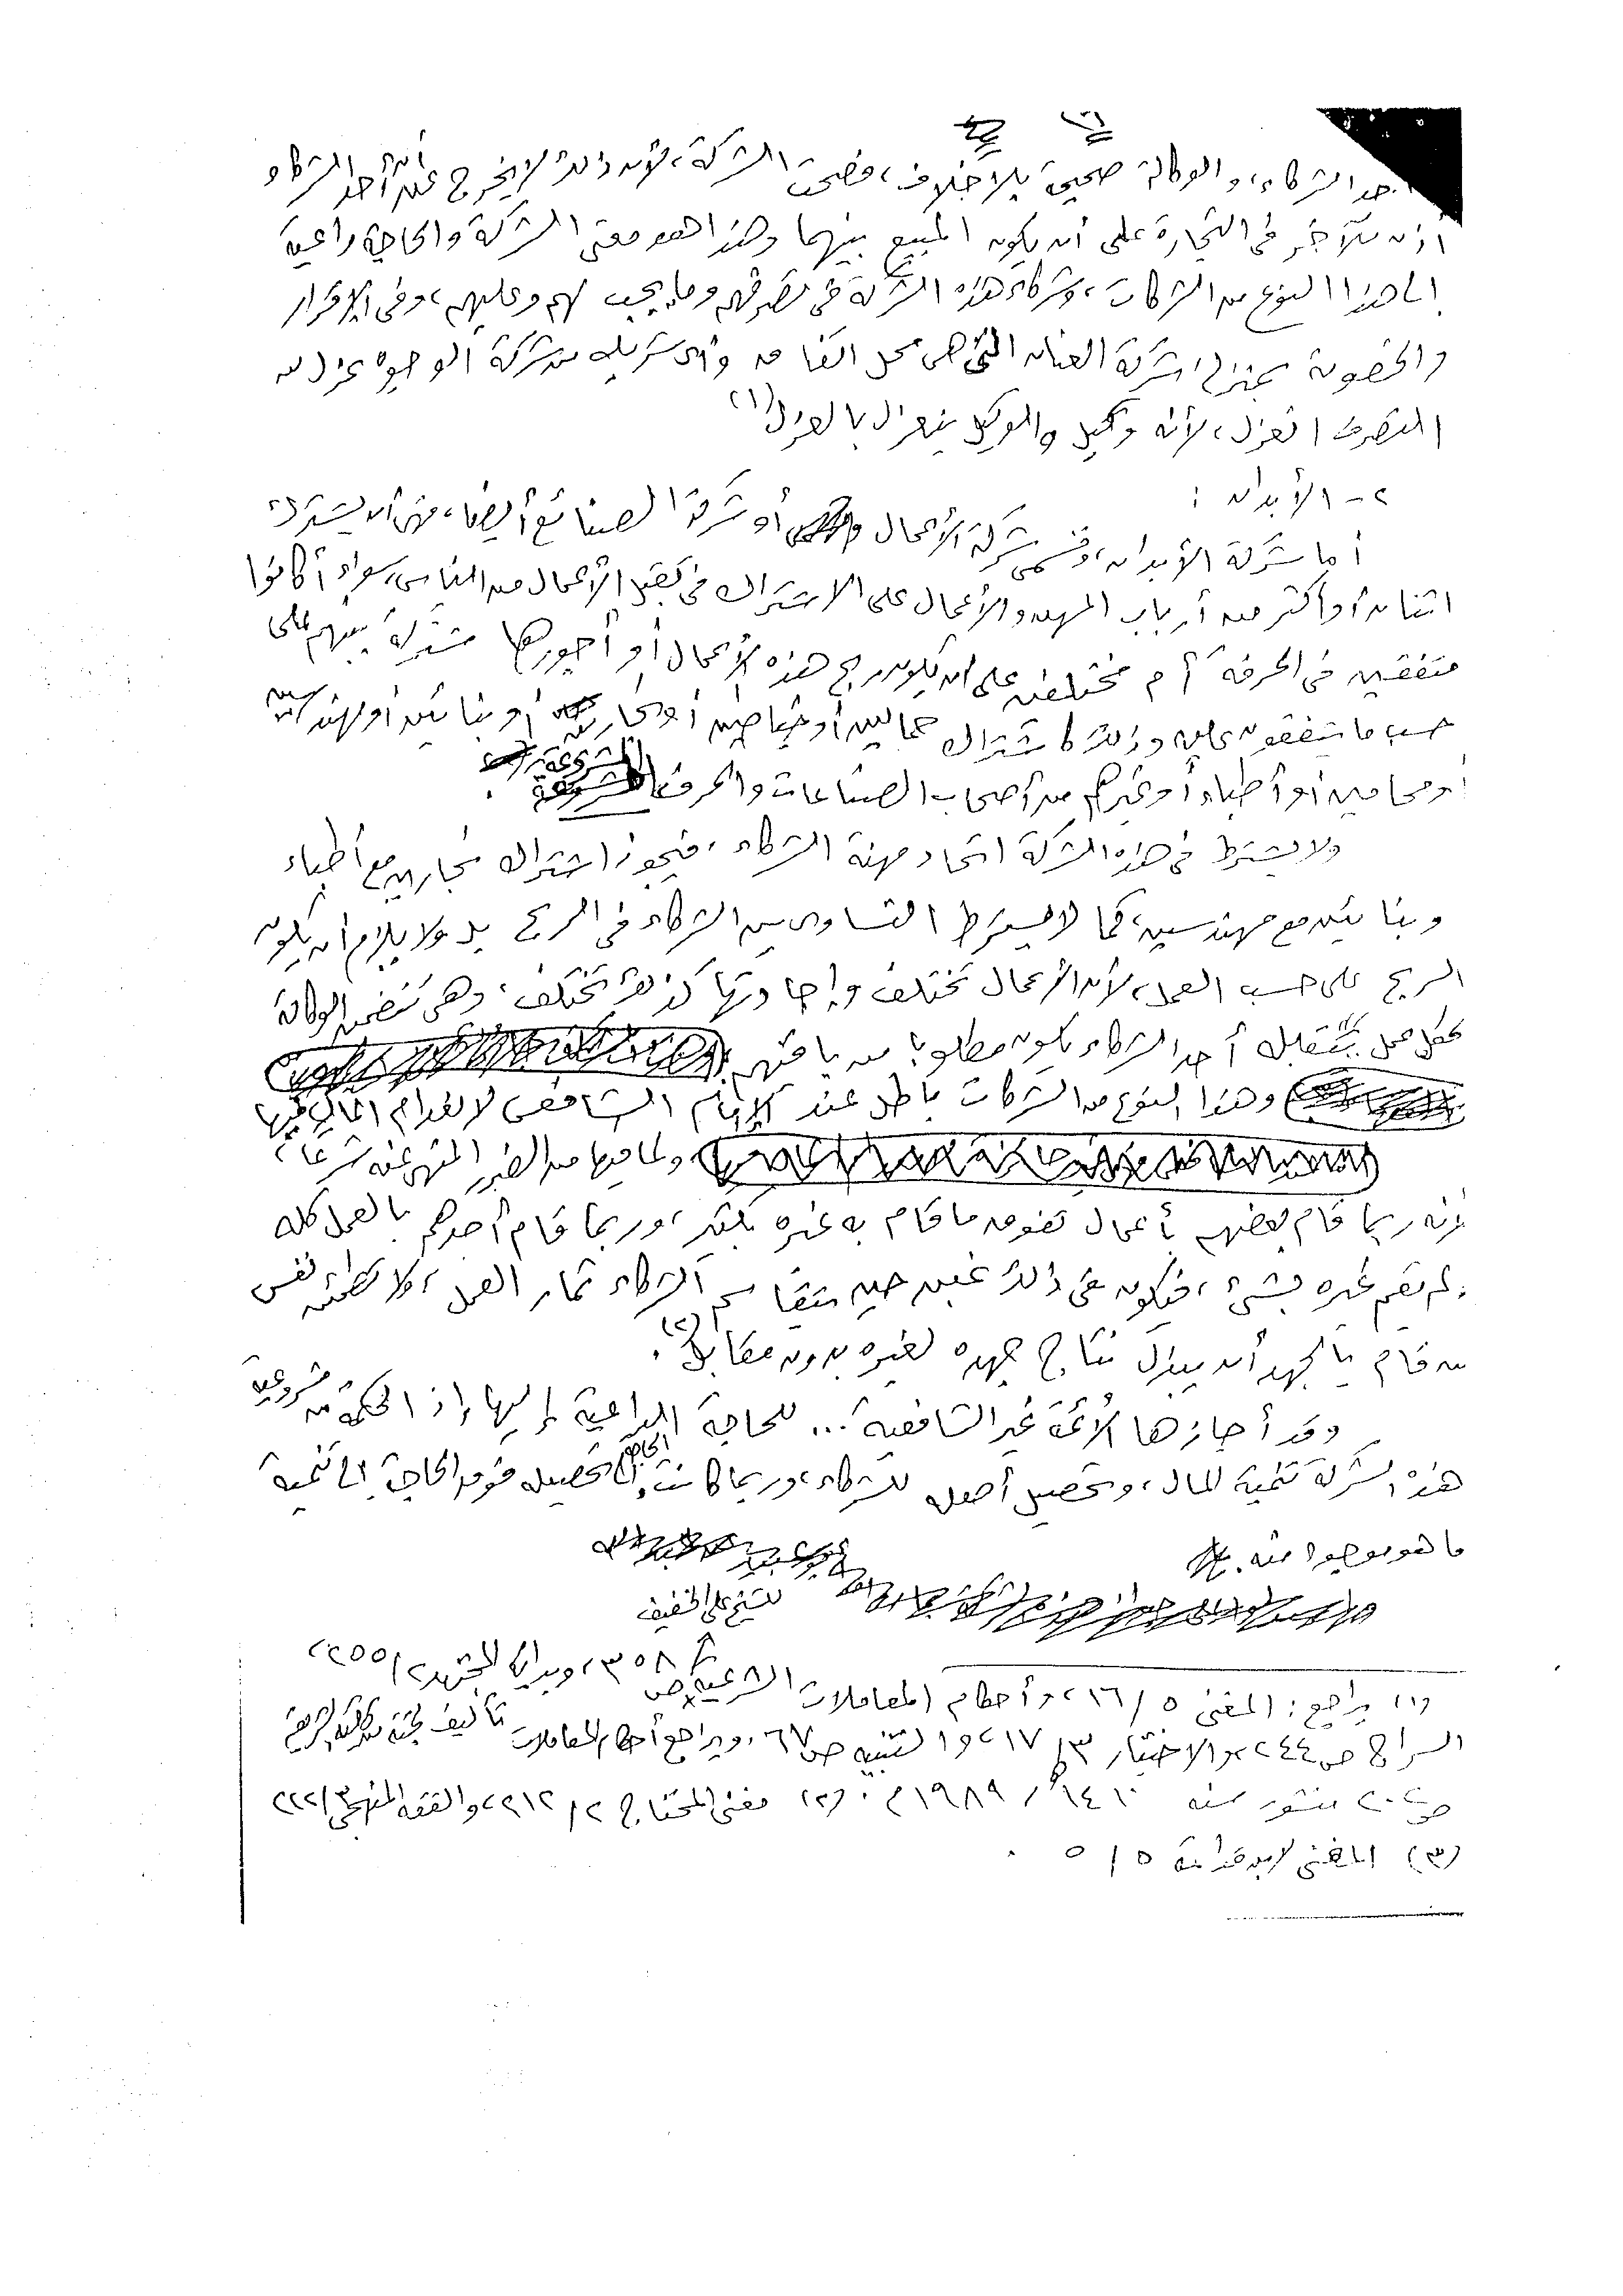 أحد الشركاء، والوكالة صحيحة بلا خلاف، فصحت الشركة، لأن ذلك لا يخرج عن أن أحد الشركاء
أذن للآخر في التجارة على أن يكون المبيع بينهما وهذا هو معنى الشركة والحاجة داعية
إلى هذا النوع من الشركات، وشركاء هذه الشركة في تصرفهم وما يجب لهم وعليهم، وفي الإقرار
والخصومة بمنزلة شركة العنان التي هي محل اتفاق وأي شريك من شركة الوجوه عزل من
التصرف انعزل، لأنه وكيل والوكيل ينعزل بالعزل (١)
٢ - الأبدان :
أما شركة الأبدان، وتسمى شركة الأعمال أو شركة الصنائع أيضا، فهي أن يشترك
اثنان أو أكثر من أرباب المهن والأعمال على الاشتراك في تقبل الأعمال من الناس، سواء أكانوا
متفقين في الحرفة أم مختلفين على أن يكون ربح هذه الأعمال أو أجورها مشتركة بينهم على
حسب ما يتفقون عليه وذلك كاشتراك حمالين أو خياطين أو نجارين أو بنائين أو مهندسين
أو محامين أو أطباء أو غيرهم من أصحاب الصناعات والحرف المشروعة .
ولا يشترط في هذه الشركة اتحاد مهنة الشركاء، فيجوز اشتراك نجارين مع أطباء
وبنائين مع مهندسين، كما لا يشترط التساوي بين الشركاء في الربح بل ولا يلزم أن يكون
الربح على حسب العمل، لأن الأعمال تختلف وإجادتها كذلك تختلف، وهي تتضمن الوكالة
فكل عمل يتقبله أحد الشركاء يكون مطلوبا من باقيهم
وهذا النوع من الشركات باطل عند الإمام الشافعي لانعدام المال فيها
ولما فيها من الغرر المنهي عنه شرعا،
لأنه ربما قام بعضهم بأعمال تفوق ما قام به غيره بكثير، وربما قام أحدهم بالعمل كله
ولم يقم غيره بشيء، فيكون في ذلك غبن حين يتقاسم الشركاء ثمار العمل، ولا تطمئن نفس
من قام بالجهد أن يبذل نتاج جهده لغيره بدون مقابل (٢).
وقد أجازها الأئمة غير الشافعية ... للحاجة الداعية إليها، إذ الحكمة من مشروعية
هذه الشركة تنمية المال، وتحصيل أصله للشركاء، وربما كانت الحاجة إلى تحصيله فوق الحاجة إلى تنمية
ما هو موجود منه.
للشيخ علي الخفيف
(١) يراجع : المغني ٥ / ١٦، وأحكام المعاملات الشرعية ص ٣٥٨، وبداية المجتهد ٢ / ٢٥٥،
السراج ص ٢٤٤، والاختيار ٣ / ١٧، والتنبيه ص ٦٧، ويراجع أحكام المعاملات تأليف لجنة بكلية الشريعة
ص ٢٠٢ منشور سنة ١٤١٠ هـ / ١٩٨٩ م . (٢) مغني المحتاج ٢ / ٢١٢، والفقه المنهجي ٣ / ٢٢٢
(٣) المغني لابن قدامة ٥ / ٥ .